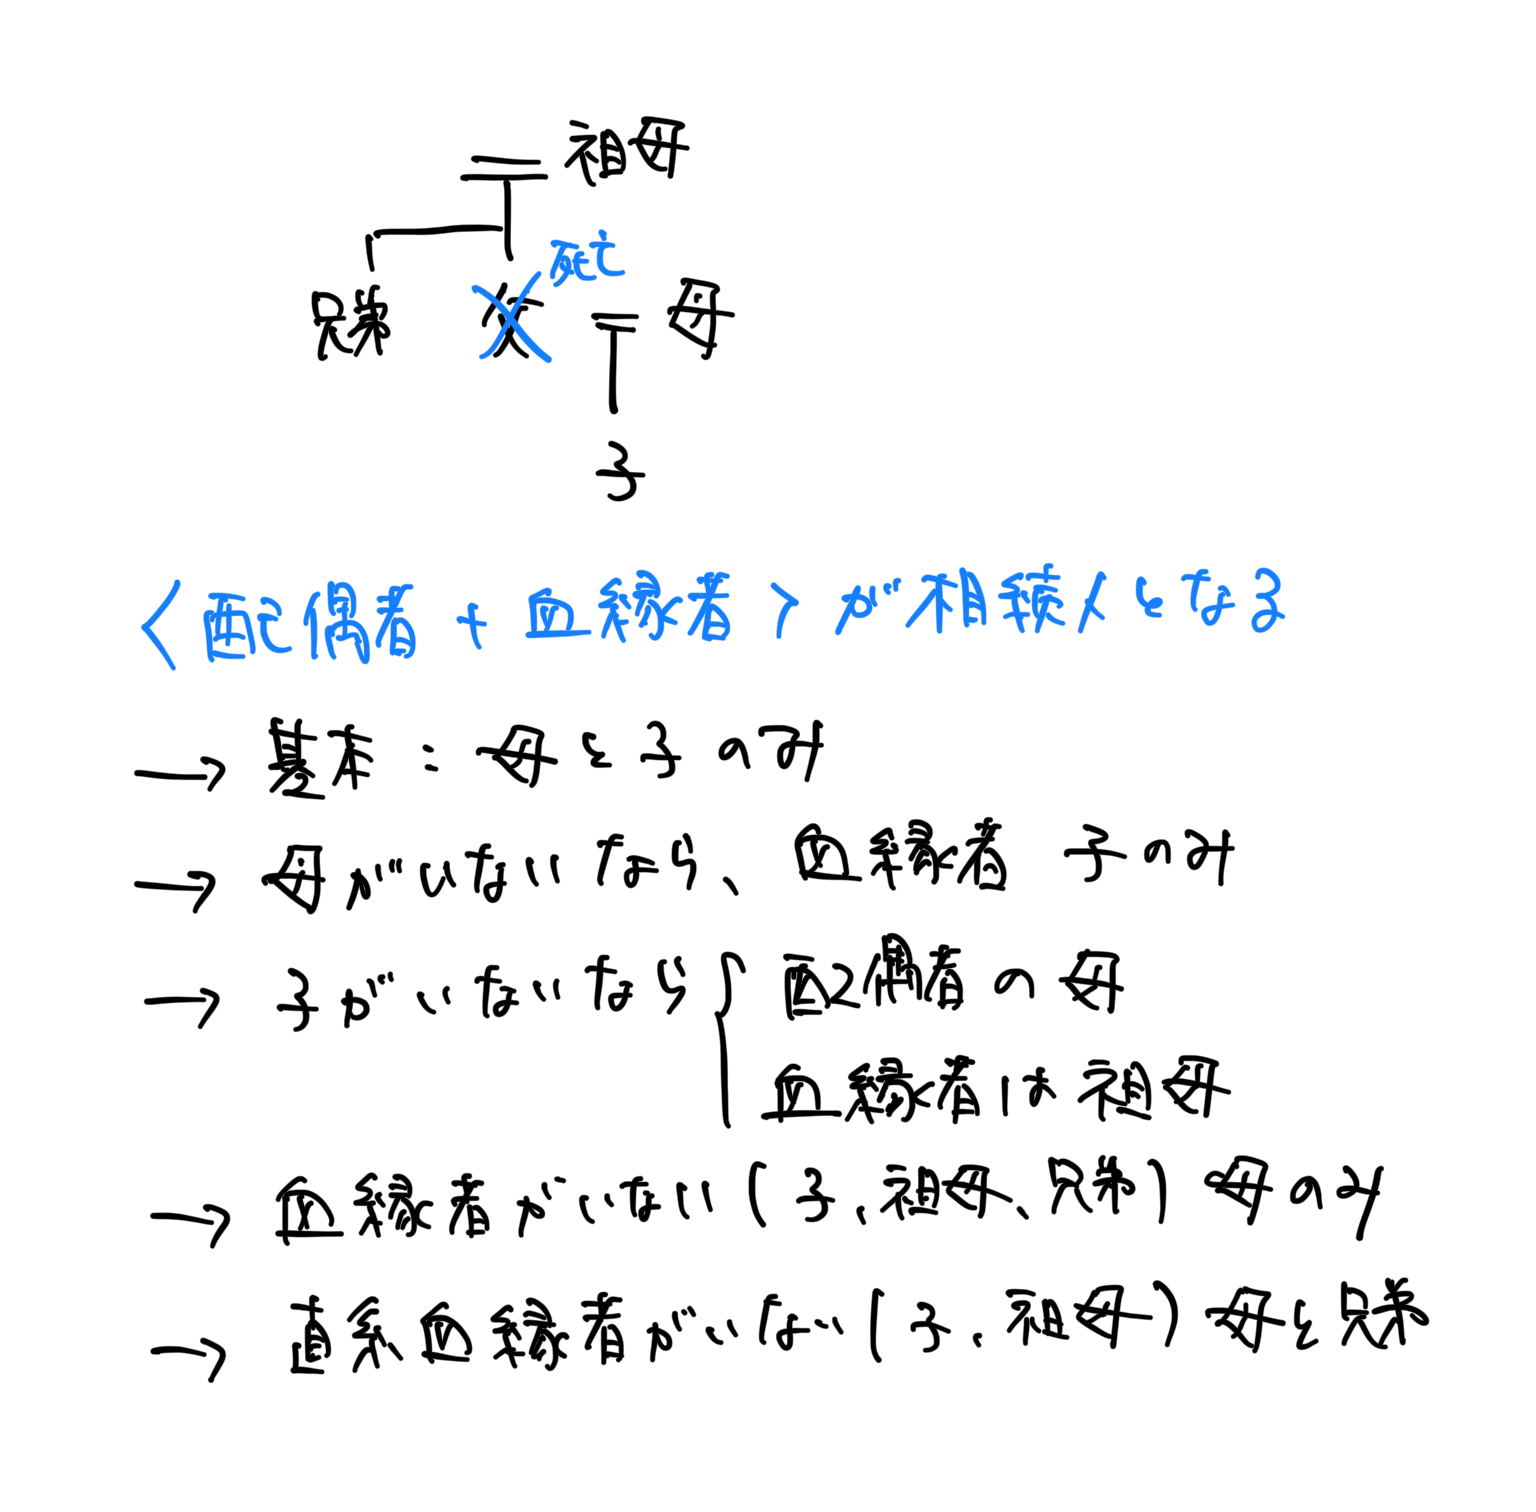 祖母
死亡
兄弟 父 母
子
<配偶者+血縁者>が相続人となる
→ 基本:母と子のみ
→ 母がいないなら、血縁者 子のみ
→ 子がいないなら{ 配偶者の母
血縁者は祖母
→ 血縁者がいない(子、祖母、兄弟)母のみ
→ 直系血縁者がいない(子、祖母)母と兄弟